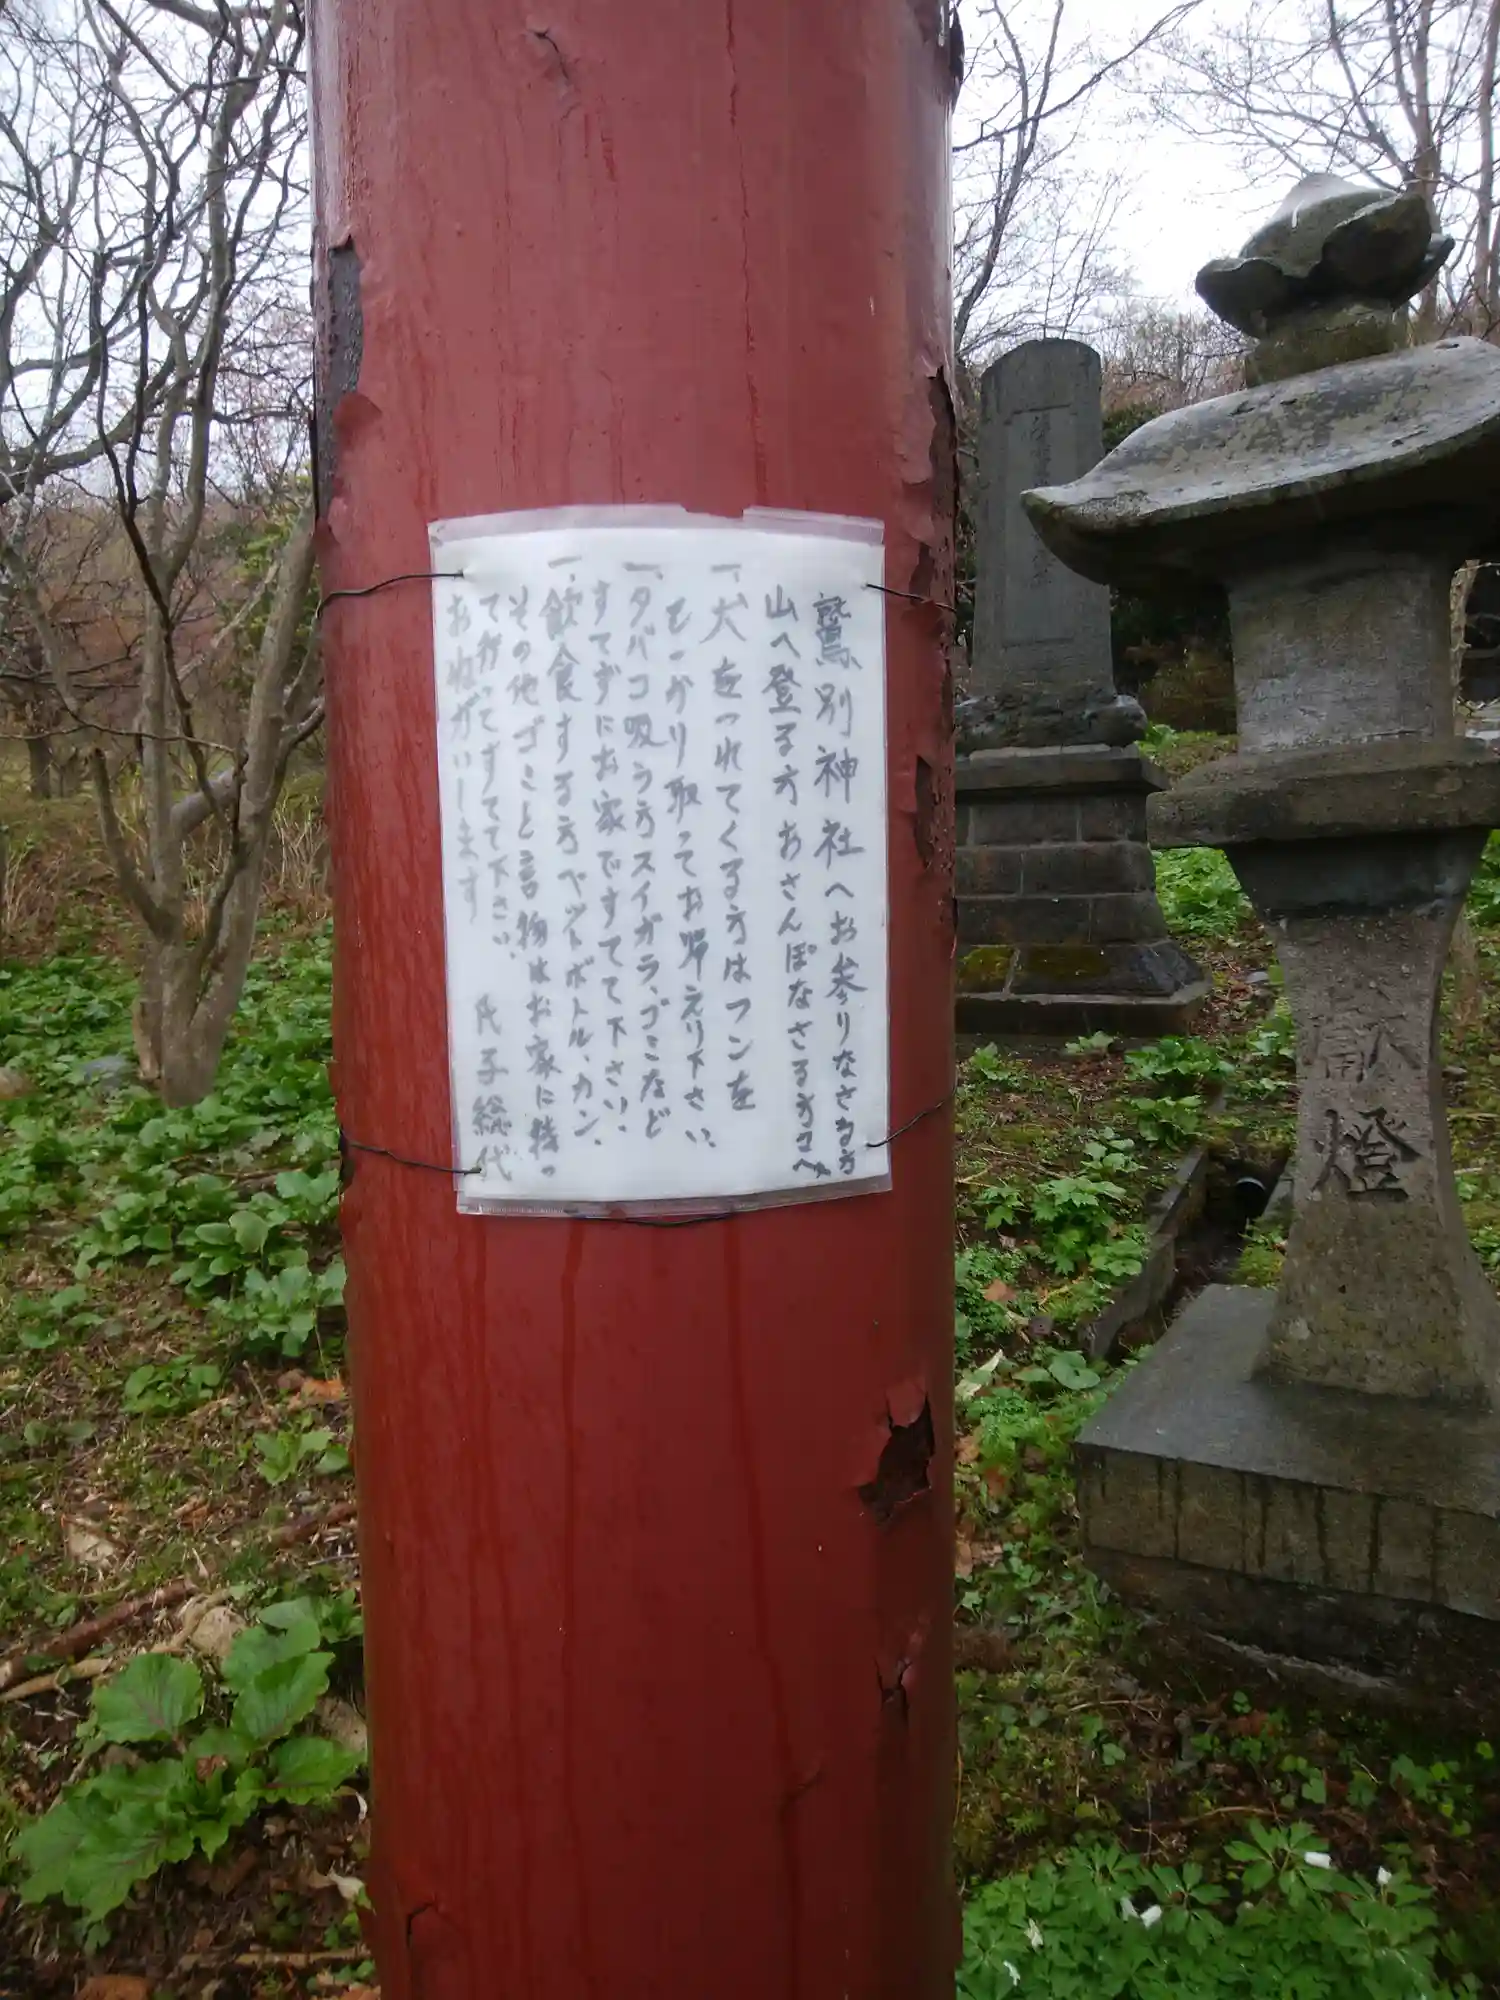 鷲別神社へお参りなさる方
山へ登る方おさんぽなさる方さへ
一、犬をつれてくる方はフンを
しっかり取ってお帰えり下さい、
一、タバコ吸う方スイガラ、ゴミなど
すてずにお家ですてて下さい、
一、飲食する方ペットボトル、カン、
その他ゴミと言物はお家に持っ
て行ってすてて下さい、
おねがいします
氏子総代
献燈